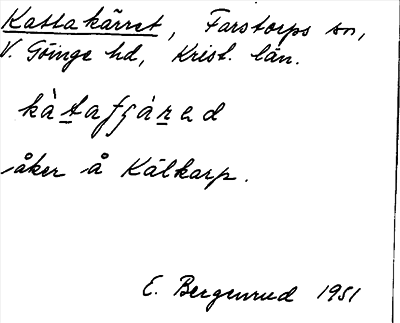 Kattakärret, Farstorps sn,
V. Göinge hd, Krist. län.
åker å Kälkarp.
E. Bergenrud 1951